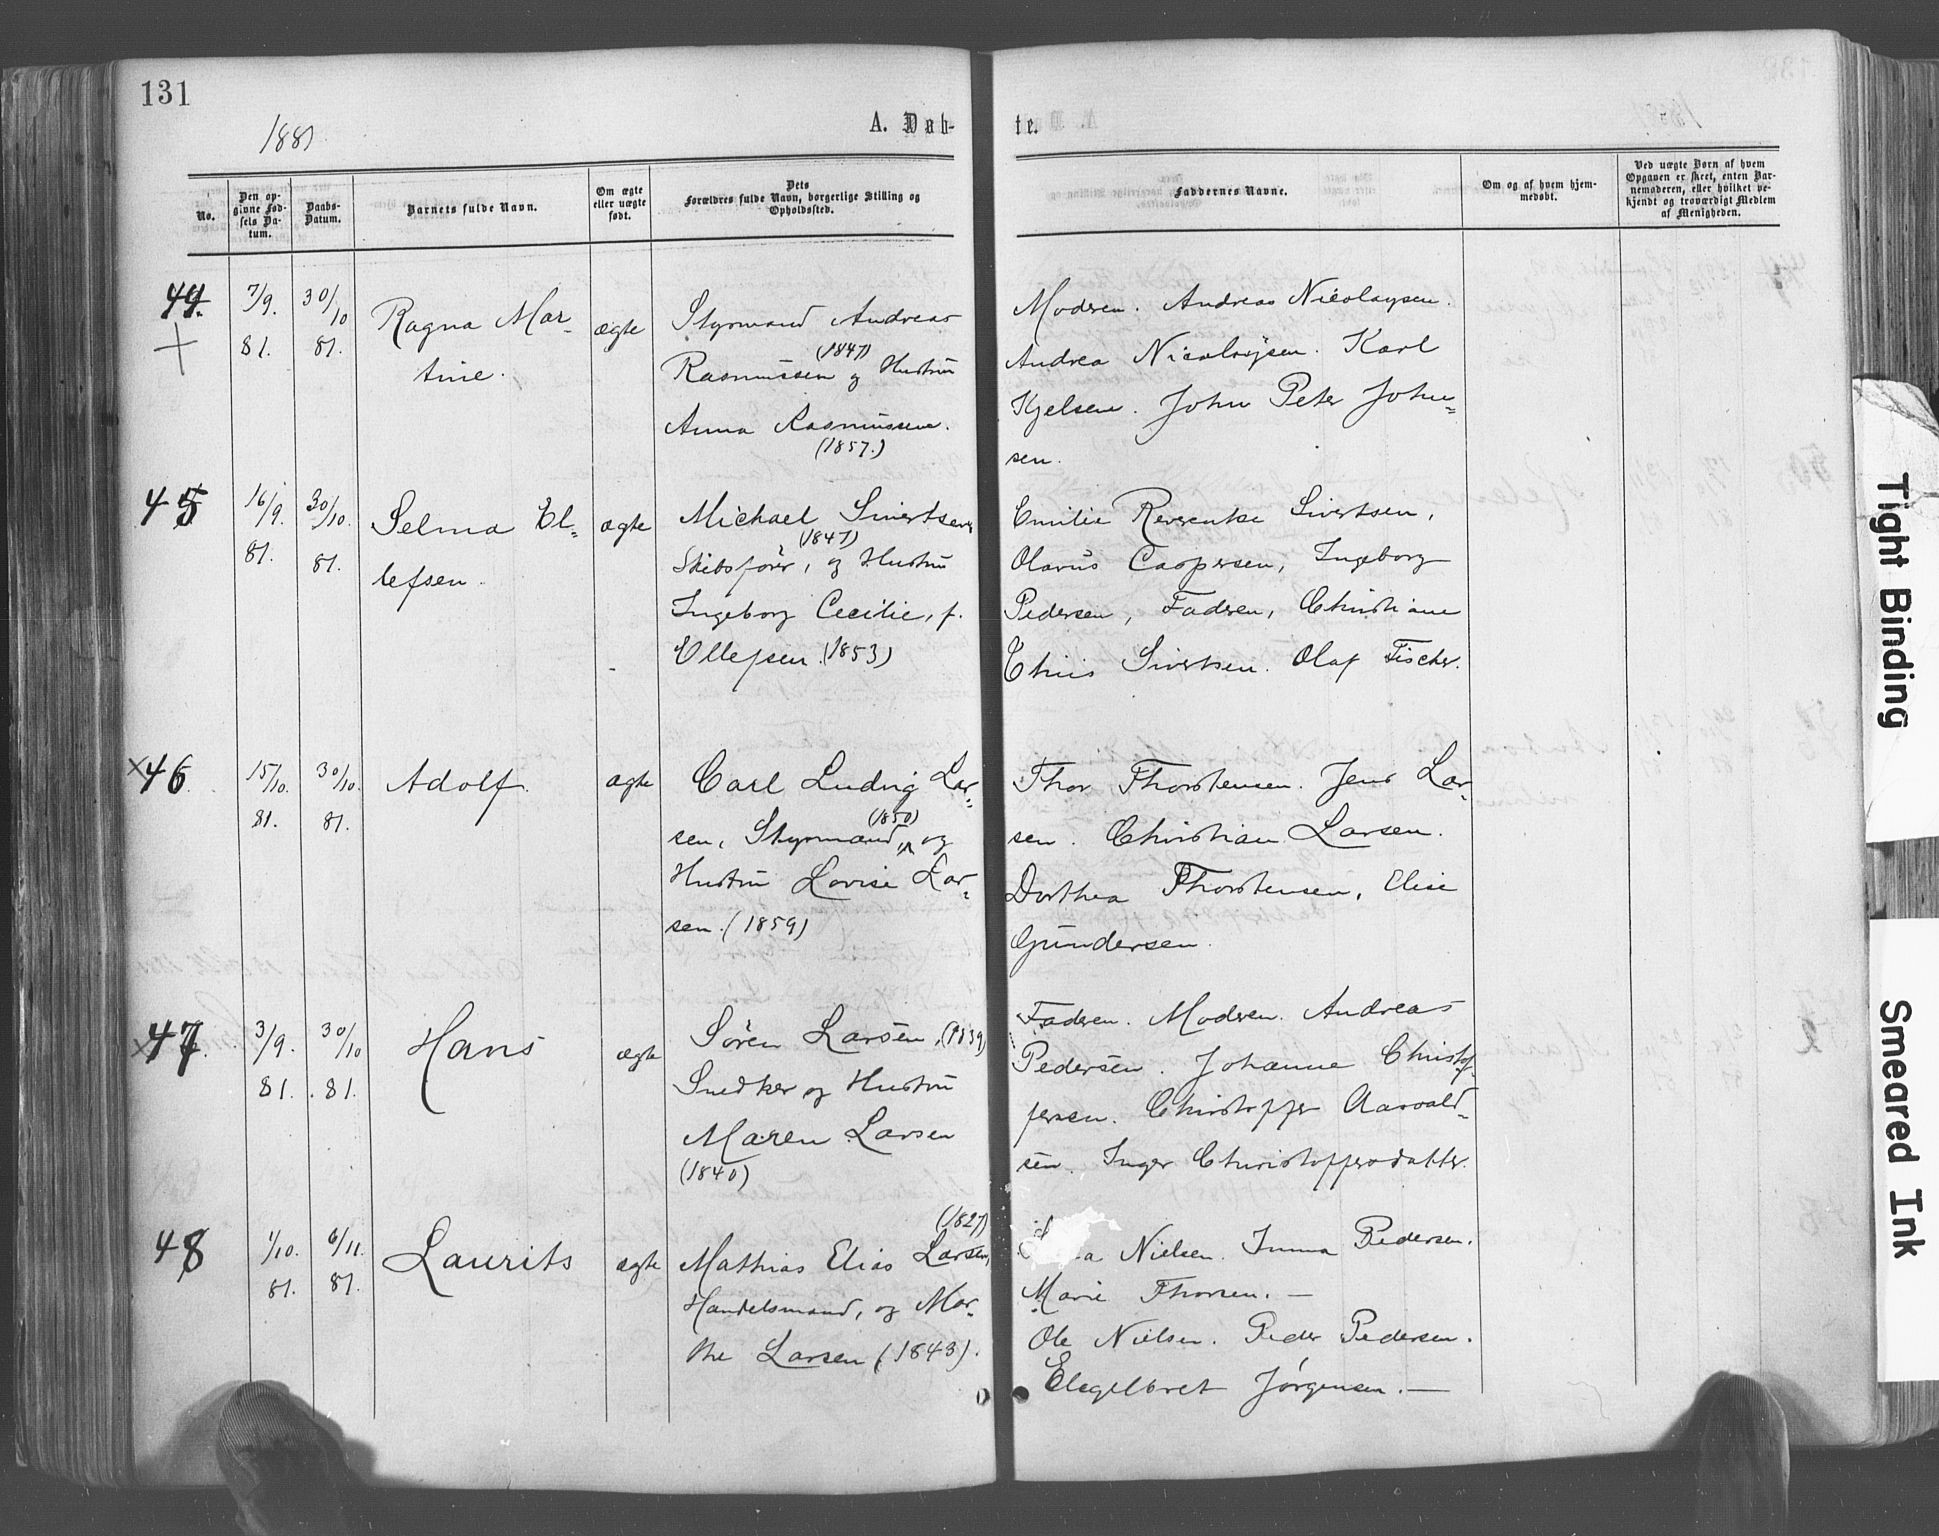 131
1881
A. Dab-
te.
No.
Den op-
givne Fød-
sels Da-
tum.
Daabs-
Datum.
Barnets fulde Navn.
Om ægte
eller uægte
født.
Dets
Forældres fulde Navn, borgerlige Stilling og
Opholdssted.
Faddernes Navne.
Om og af hvem hjem-
medøbt.
Ved uægte Børn af hvem
Opgaven er skeet, enten Bar-
nemoderen, eller hvilket be-
kjendt og troværdigt Medlem
af Menigheden.
44.
7/9.
81.
30/10
81.
Ragna Mar-
tine.
ægte
Styrmand Andreas
(1847)
Rasmussen og Hustru
Anna Rasmussen.
(1857.)
Moderen. Andreas Nicolaysen.
Andrea Nicolaysen. Karl
Kjelsen. John Peter John=
sen.
45
16/9.
81.
30/10.
81.
Selma El=
lefsen.
ægte
Michael Sivertsen,
(1847)
Skibsfører, og Hustru
Ingeborg Cecilie, f.
Ellefsen. (1853)
Emilie Reverentse Sivertsen,
Olavus Caspersen, Ingeborg
Pedersen, Faderen, Christiane
Thiis Sivertsen. Olaf Fischer.
×46
15/10.
81.
30/10.
81.
Adolf.
ægte
Carl Ludvig Lar=
(1850)
sen, Styrmand, og
Hustru Lovise Lar=
sen. (1859)
Thor Thorstensen. Jens Lar=
sen. Christian Larsen.
Dorthea Thorstensen, Elise
Gundersen.
×47.
3/9.
81.
30/10
81.
Hans
ægte
Søren Larsen, (1839)
Snedker og Hustru
Maren Larsen
(1840)
Faderen. Moderen. Andreas
Pedersen. Johanne Christof-
fersen. Christoffer Aasvald=
sen. Inger Christoffersdatter.
48
1/10.
81.
6/11.
81.
Laurits
ægte
(1827)
Mathias Elias Larsen,
Handelsmand, og Mar=
the Larsen (1843).
Nielsen. Inma Pedersen.
Marie Thorsen. —
Ole Nielsen. Peder Pedersen.
Elegelbret Jørgensen. —
Tight Binding
Smeared Ink